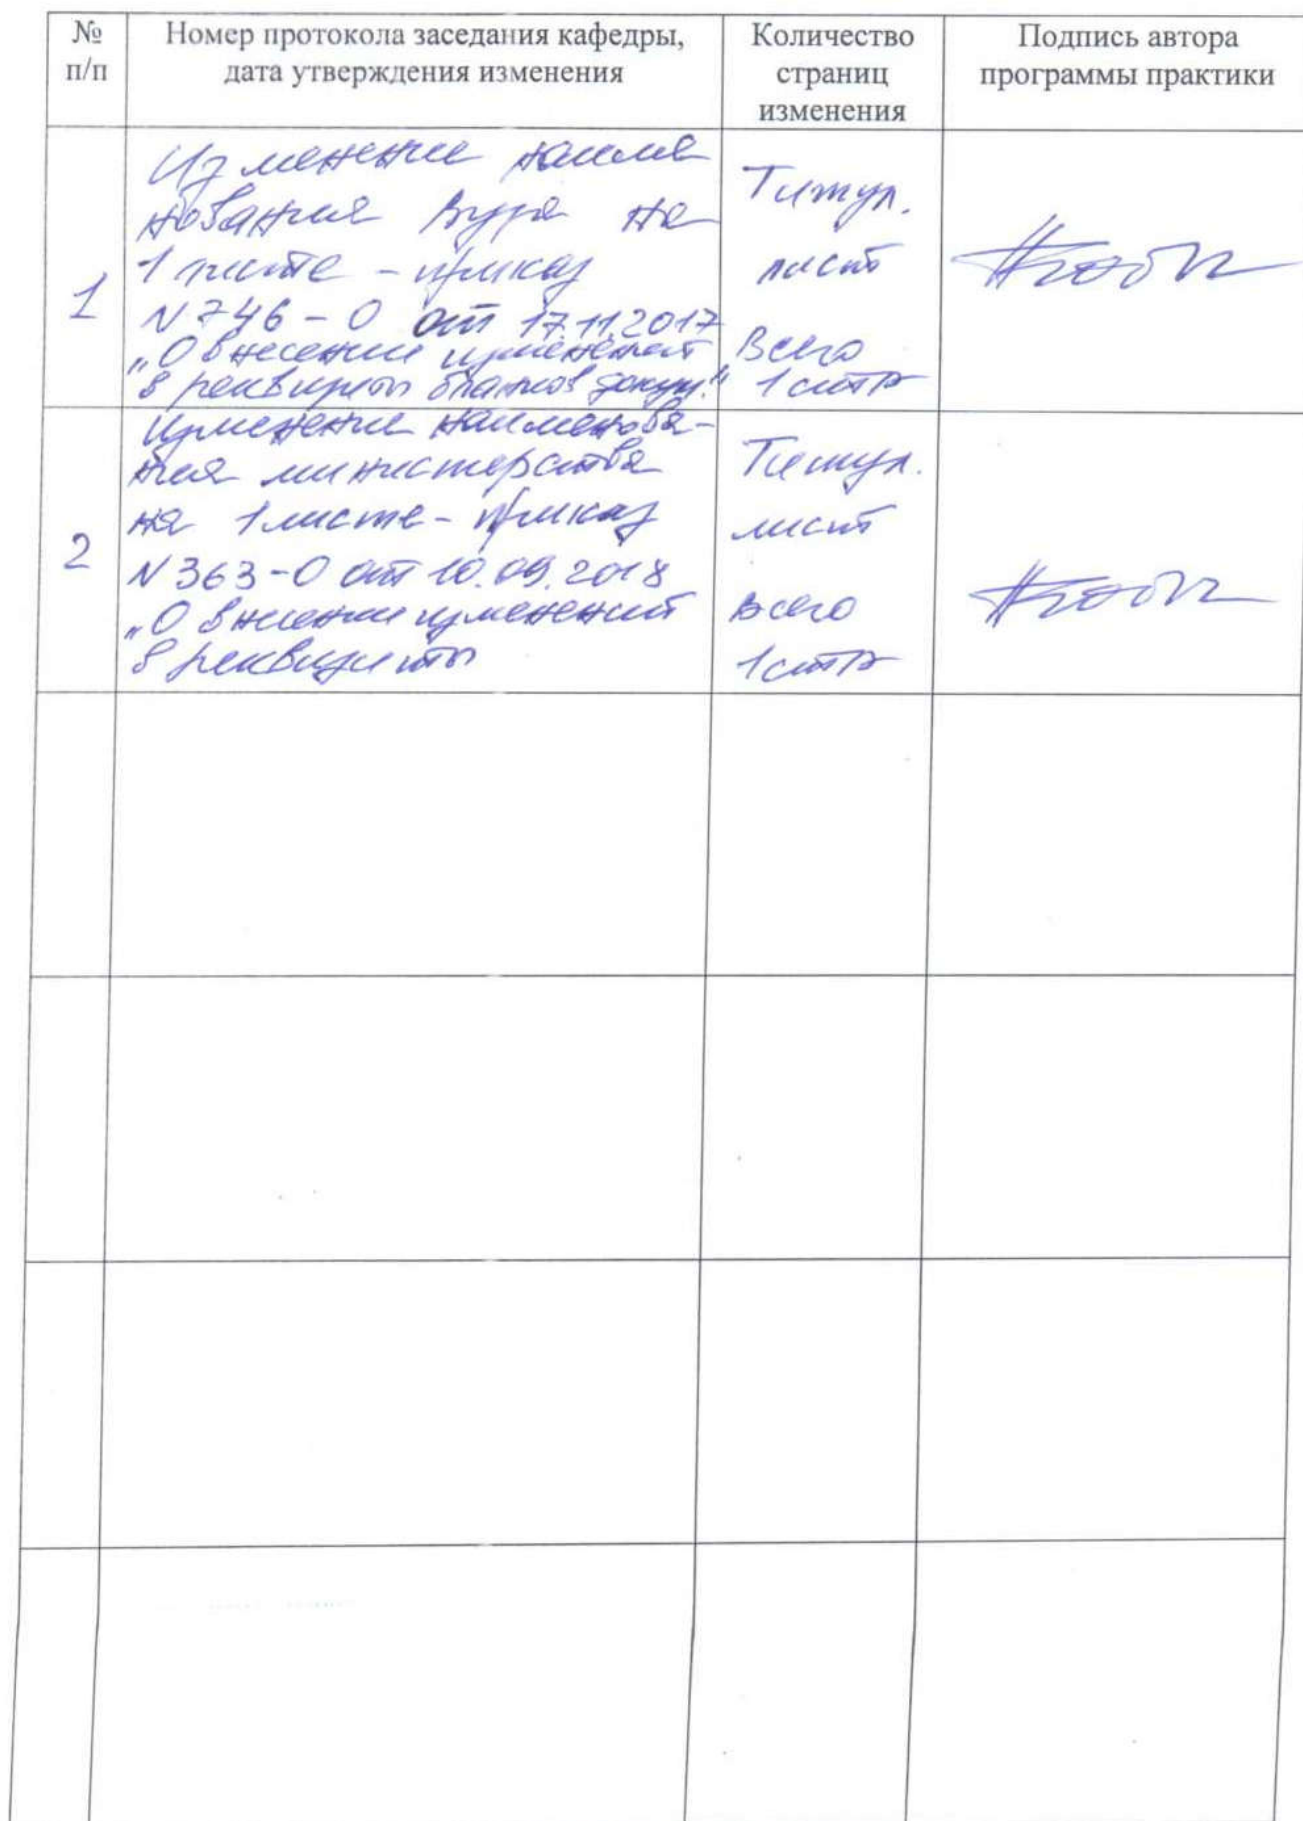 № п/п
Номер протокола заседания кафедры,
дата утверждения изменения
Количество
страниц
изменения
Подпись автора
программы практики
1
Изменение наиме
нования вуза на
1 листе - приказ
N 746 - О от 17.11.2017
„О внесении изменений
в реквизиты бланков докум."
Титул.
лист
Всего
1 стр
2
Изменение наименова-
ния министерства
на 1 листе - приказ
N 363 - О от 10.09.2018
„О внесении изменений
в реквизиты
Титул.
лист
всего
1 стр